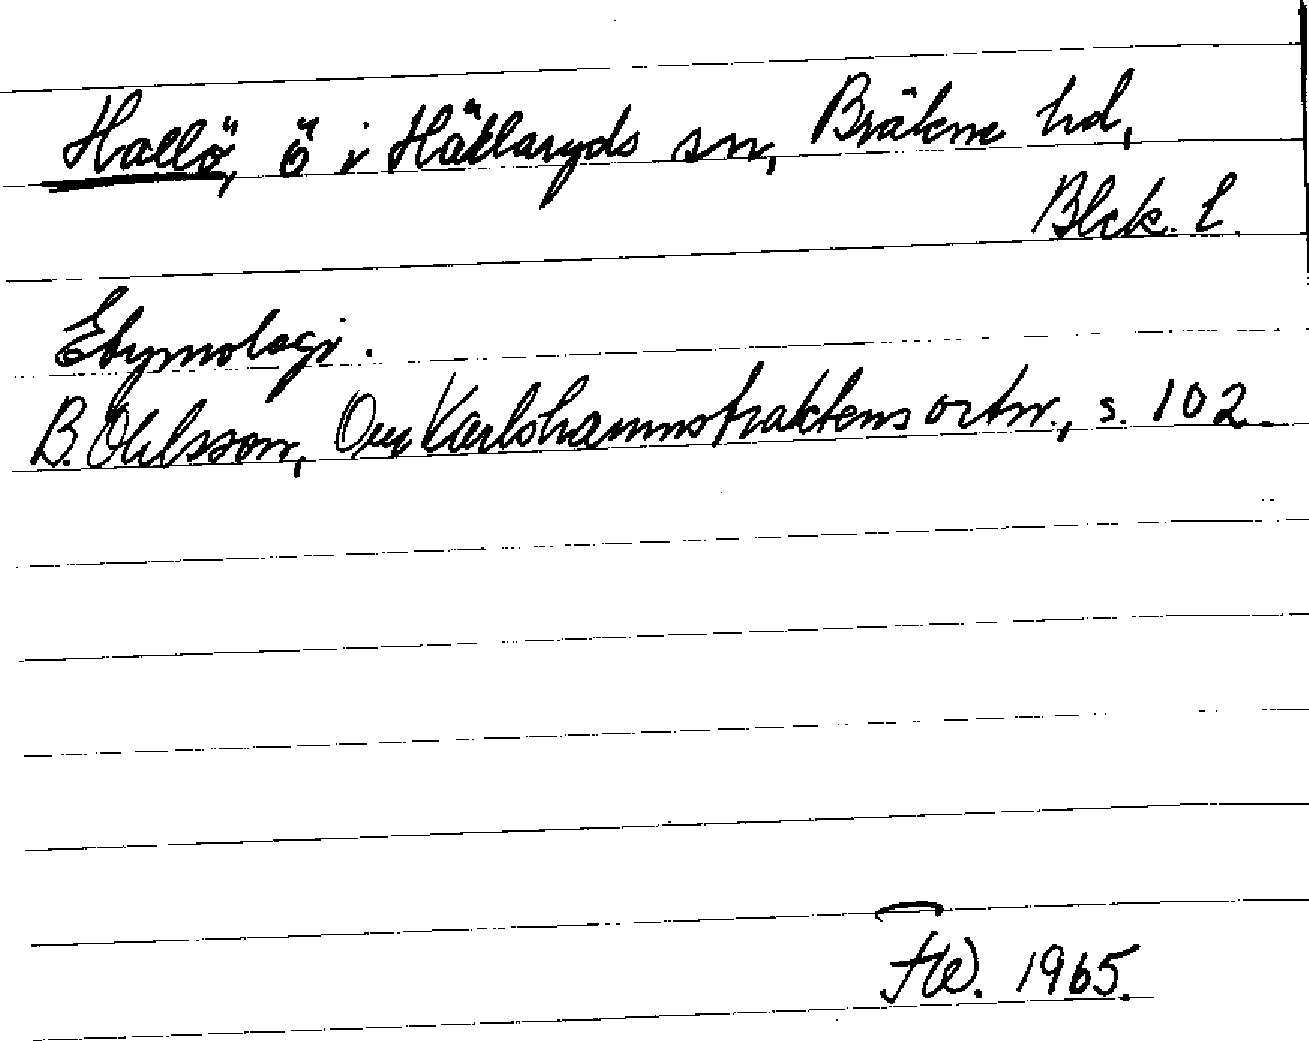 Hallö, ö i Hällaryds sn, Bräkne hd,
Blek. l.
Etymologi.
B. Ohlsson, Om Karlshamnstraktens ortn., s. 102.
FW. 1965.